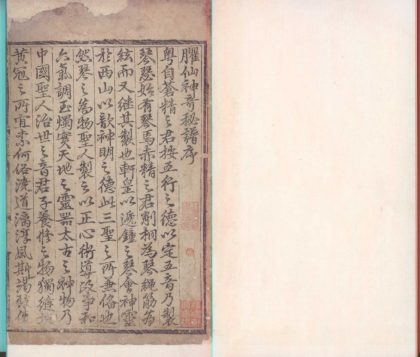 臞仙神奇秘譜序
粵自蒼精之君按五行之德以定五音乃製
琴瑟始有琴焉赤精之君削桐為琴繩絲為
絃而又繼其製也軒皇以遞鍾之琴會神靈
於西山以歆神明之德此三聖之所無倦也
然琴之為物聖人製之以正心術導政事和
六氣調玉燭實天地之靈器太古之神物乃
中國聖人治世之音君子養修之物獨縫掖
黃冠之所宜柰何俗澆道漓淳風斯竭